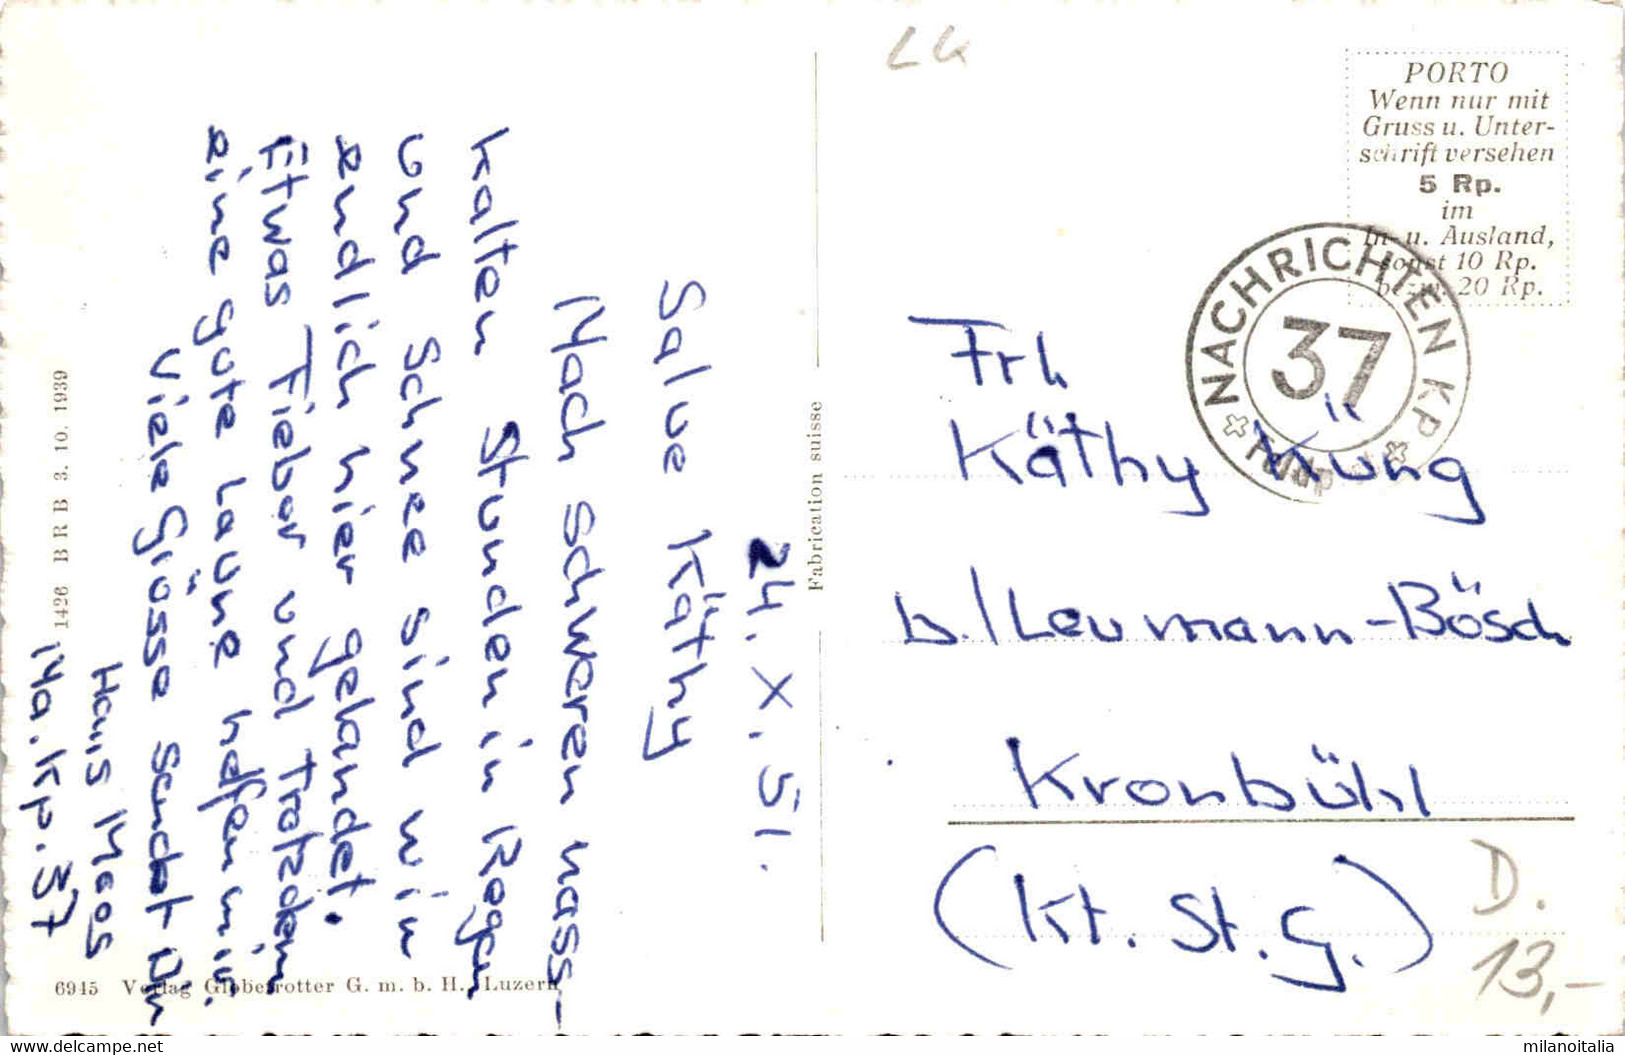 24. X. 51.
Salve Käthy
Nach schweren nass-
kalten Stunden in Regen
und Schnee sind wir
endlich hier gelandet.
Etwas Fieber und trotzdem
eine gute Laune helfen mir.
Viele Grüsse sendet Dir
Hans
Na. Kp. 37
1426 B R B 3. 10. 1939
6945 Verlag Globetrotter G. m. b. H., Luzern
Fabrication suisse
LG
PORTO
Wenn nur mit
Gruss u. Unter-
schrift versehen
5 Rp.
im
In- u. Ausland,
sonst 10 Rp.
bezw. 20 Rp.
NACHRICHTEN KP
37
Feldpost
Frl
Käthy Küng
b./Leumann-Bösch
Kronbühl
(Kt. St. G.)
D.
13,-
www.delcampe.net
milanoitalia